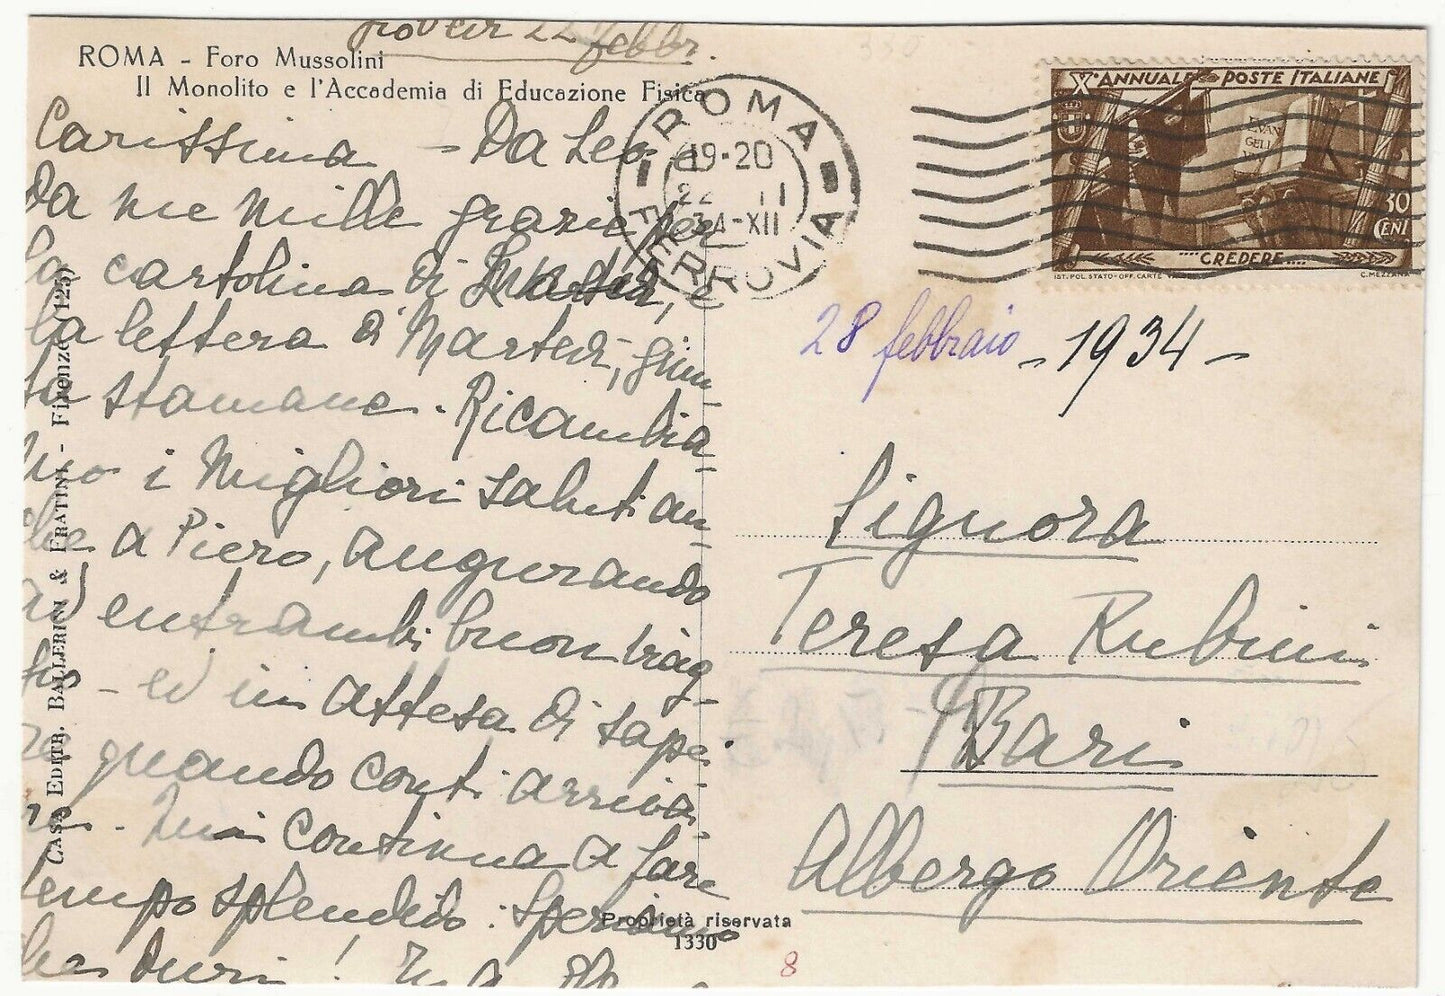 Giovedì 22 febbr.
ROMA - Foro Mussolini
Il Monolito e l'Accademia di Educazione Fisica
Carissima - Da Leo e
Da me mille grazie per
la cartolina di
la lettera di Martedì, giun-
ta stamane. Ricambia-
mo i migliori saluti an-
che a Piero, augurando
ad entrambi buon viag-
gio - ed in attesa di sape-
re quando conti arriva-
re. Qui continua a fare
tempo splendido. Speriamo
che duri!
CASA EDITR. BALLERINI & FRATINI - Firenze (125)
Proprietà riservata
1330
8
ROMA
19-20
22 II
34-XII
FERROVIA
X° ANNUALE POSTE ITALIANE
EVAN
GELI
30
CENT
CREDERE
IST. POL. STATO-OFF. CARTE
C. MEZZANA
28 febbraio - 1934 -
Signora
Teresa Rubini
Bari
Albergo Oriente